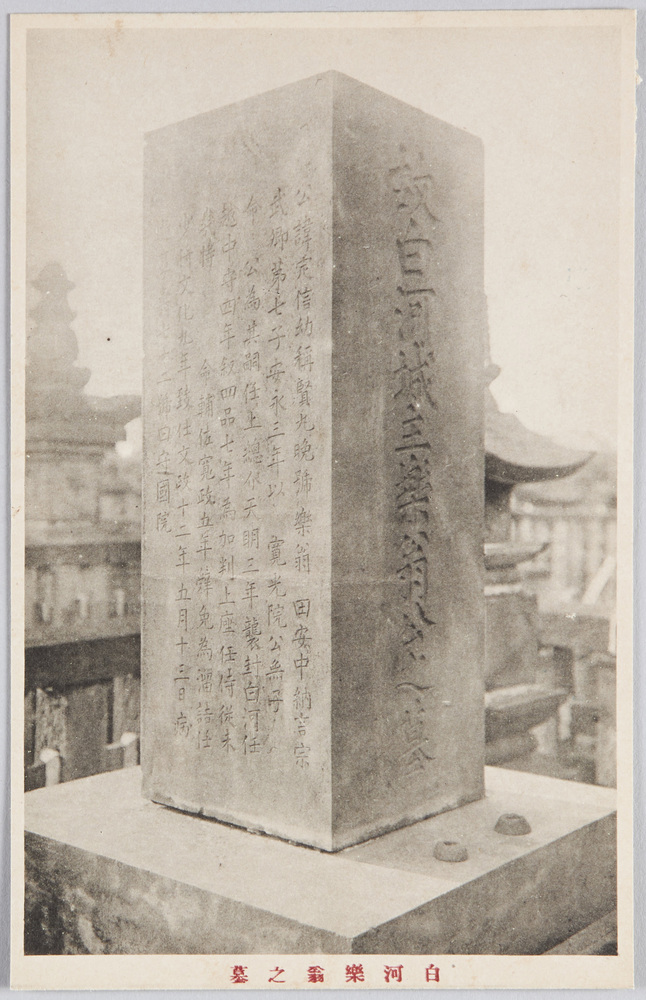 故白河城主樂翁公之墓
公諱定信幼稱賢丸晩號樂翁 田安中納言宗
武卿第七子安永三年以 寛光院公無子
命 公為其嗣任上總介天明三年襲封白河任
越中守四年叙四品七年為加判上座任侍從未
幾特 命輔佐寛政五年辭免為溜詰任
少將文化九年致仕文政十二年五月十三日病
七十二諡曰守國院
白河樂翁之墓